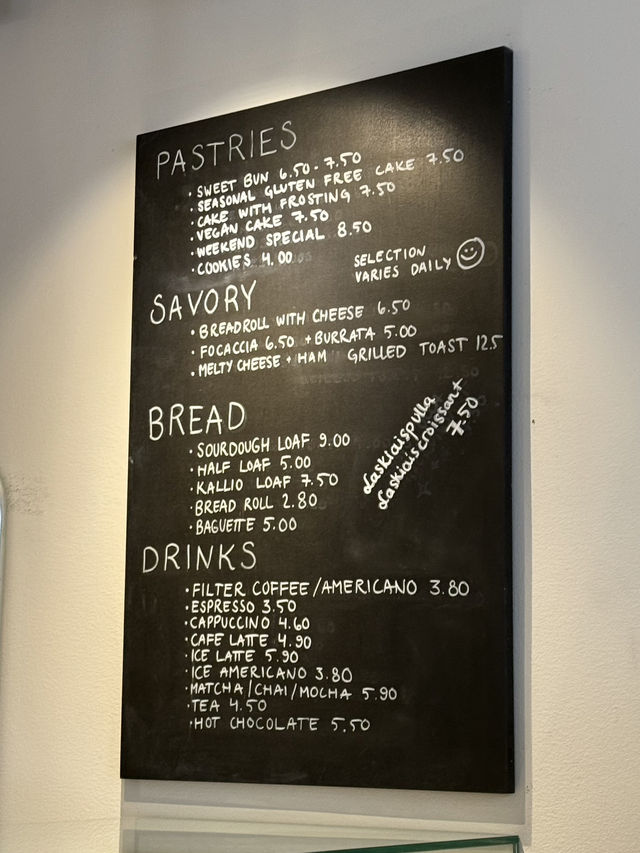 PASTRIES
• SWEET BUN 6.50 - 7.50
• SEASONAL GLUTEN FREE CAKE 7.50
• CAKE WITH FROSTING 7.50
• VEGAN CAKE 7.50
• WEEKEND SPECIAL 8.50
• COOKIES 4.00
SELECTION
VARIES DAILY
SAVORY
• BREADROLL WITH CHEESE 6.50
• FOCACCIA 6.50 + BURRATA 5.00
• MELTY CHEESE + HAM GRILLED TOAST 12.5
BREAD
• SOURDOUGH LOAF 9.00
• HALF LOAF 5.00
• KALLIO LOAF 7.50
• BREAD ROLL 2.80
• BAGUETTE 5.00
Laskiaispulla
Laskiaiscroissant
7.50
DRINKS
• FILTER COFFEE/AMERICANO 3.80
• ESPRESSO 3.50
• CAPPUCCINO 4.60
• CAFE LATTE 4.90
• ICE LATTE 5.90
• ICE AMERICANO 3.80
• MATCHA/CHAI/MOCHA 5.90
• TEA 4.50
• HOT CHOCOLATE 5.50